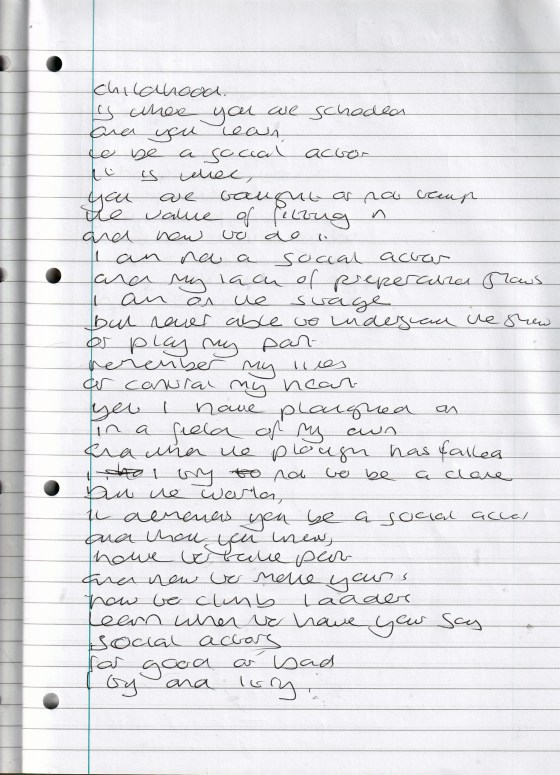 childhood.
is where you are schooled
and you learn
to be a social actor
it is where,
you are taught or not taught
the value of fitting in
and how to do it
I am not a social actor
and my lack of preperation shows
I am on the stage
but never able to understand the show
or play my part
remember my lines
or control my heart
yet I have ploughed on
in a field of my own
and when the plough has failed
I try not to be a clone
but the world,
it demands you be a social actor
and that you know,
how to take part
and how to make yours
how to climb ladders
learn when to have your say
social actors
for good or bad
I try and try.